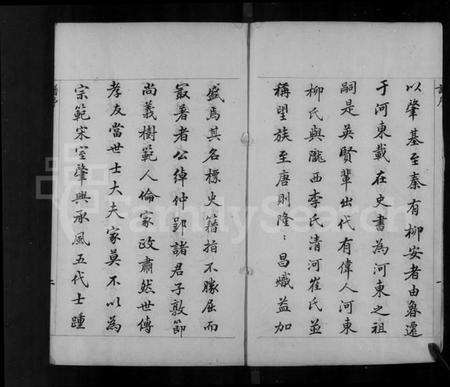 以肇基至秦有柳安者由魯遷
于河東載在史書為河東之祖
嗣是吳賢輩出代有偉人河東
柳氏與隴西李氏清河崔氏並
稱望族至唐則隆隆昌熾益加
盛焉其名標史籍指不勝屈而
最著者公倬仲郢諸君子敦節
尚義樹範人倫家政肅然世傳
孝友當世士大夫家莫不以為
宗範宋室肇興承風五代士踵
FamilySearch